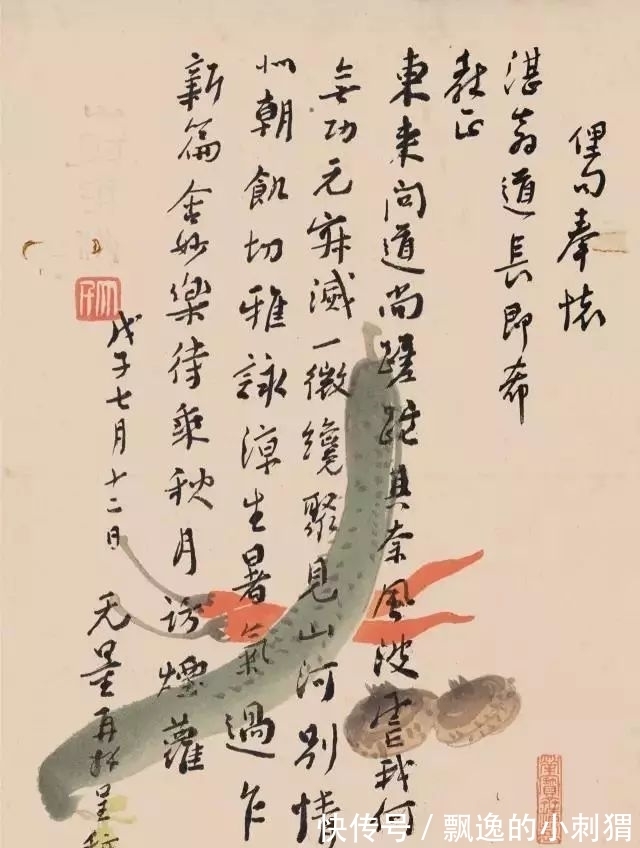 俚句奉懷
湛翁道長即希
教正
東來問道尚蹉跎其奈風波我何
無功元寂滅一微纔聚見山河別情
朝飢切雅詠涼生暑氣過乍
新篇含妙樂待乘秋月訪煙蘿
戊子七月十二日 无量再拜呈
快传号 / 飘逸的小刺猬